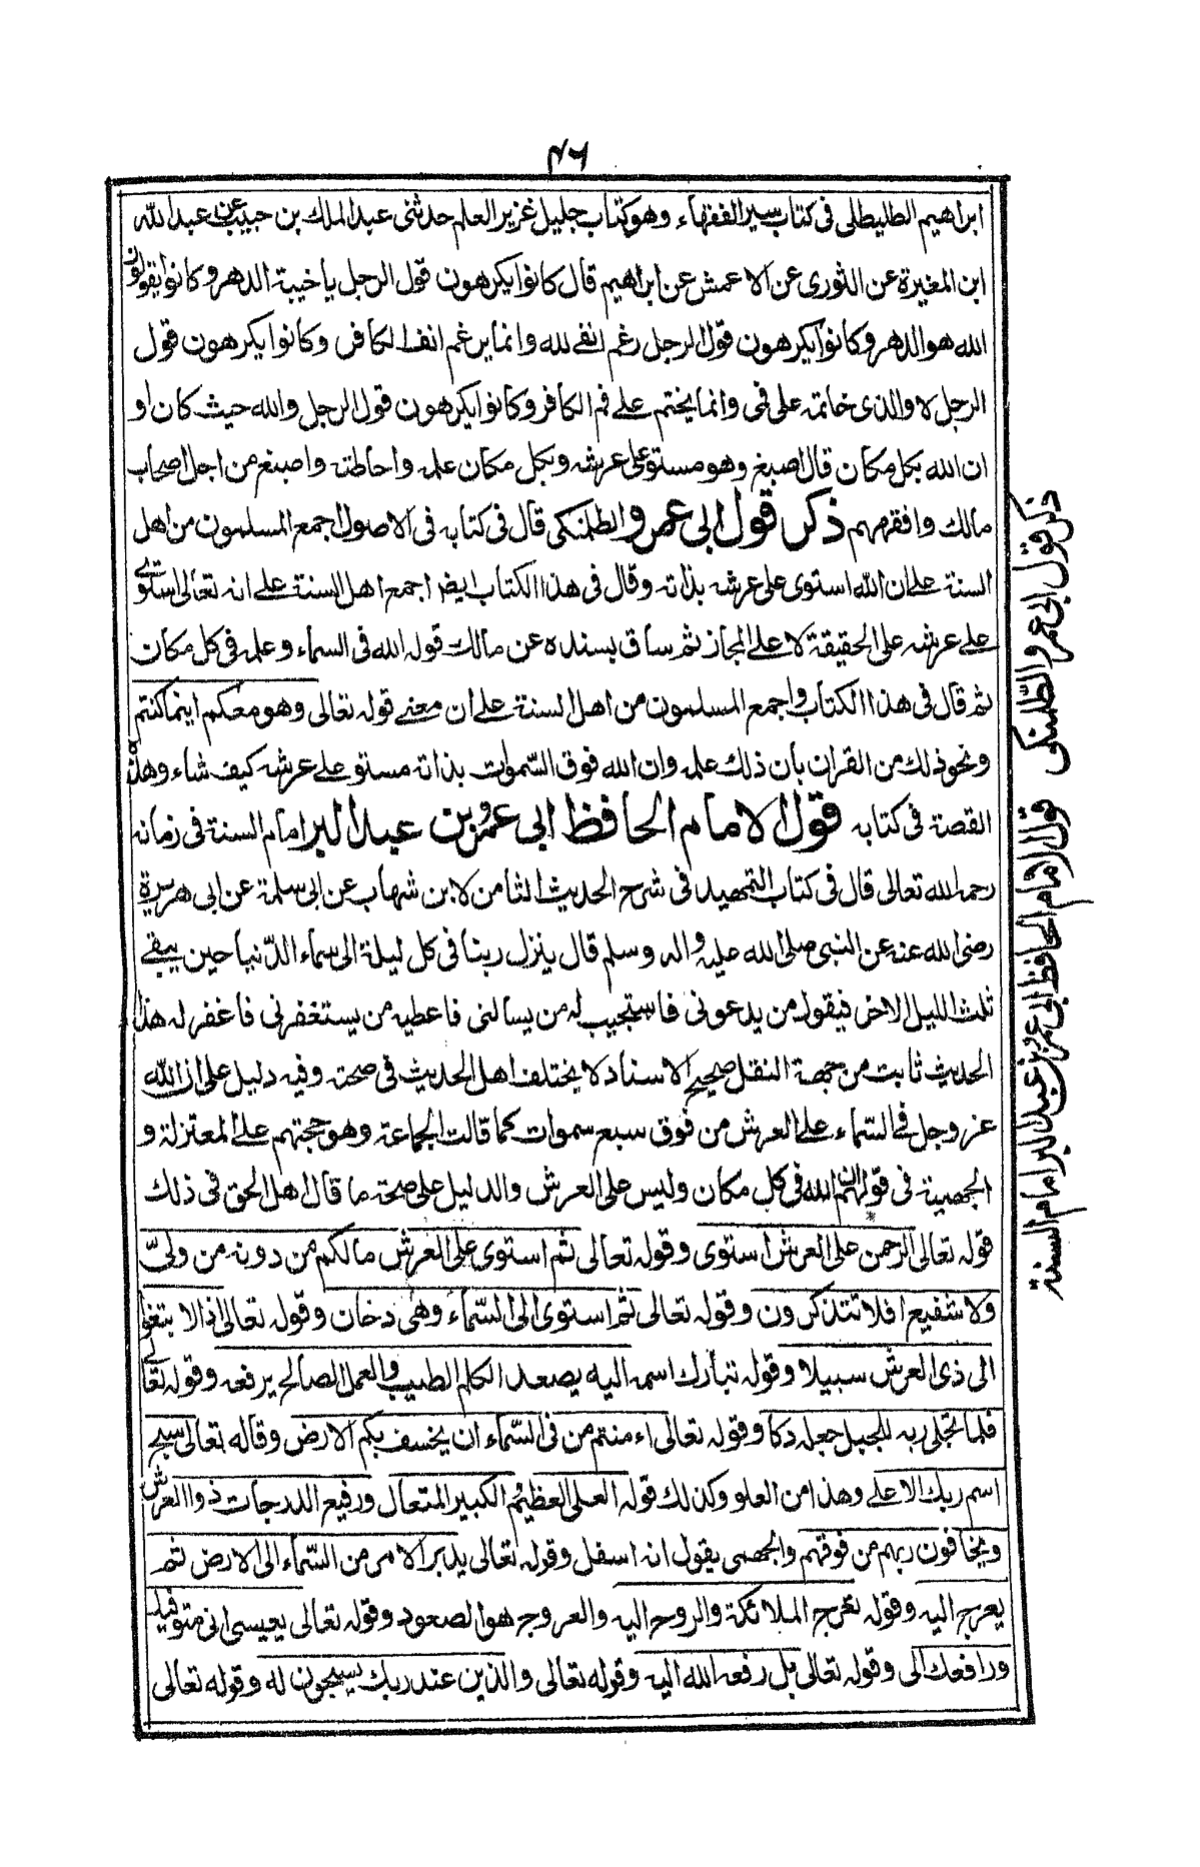 ٤٦
ابراهيم الطليطلى فى كتاب سير الفقهاء وهو كتاب جليل غزير العلم حدثنى عبد الملك بن حبيب عن عبد الله
ابن المغيرة عن الثورى عن الاعمش عن ابراهيم قال كانوا يكرهون قول الرجل يا خيبة الدهر وكانوا يقولون
الله هو الدهر وكانوا يكرهون قول الرجل رغم انفى لله وانما يرغم انف الكافر وكانوا يكرهون قول
الرجل لا والذى خاتمه على فمى وانما يختم على فم الكافر وكانوا يكرهون قول الرجل والله حيث كان او
ان الله بكل مكان قال اصبغ وهو مستو على عرشه وبكل مكان علمه واحاطته واصبغ من اجل اصحاب
مالك وافقههم ذكر قول ابى عمر والطلمنكى قال فى كتابه فى الاصول اجمع المسلمون من اهل
السنة على ان الله استوى على عرشه بذاته وقال فى هذا الكتاب ايضا اجمع اهل السنة على انه تعالى استوى
على عرشه على الحقيقة لا على المجاز ثم ساق بسنده عن مالك قوله الله فى السماء وعلمه فى كل مكان
ثم قال فى هذا الكتاب واجمع المسلمون من اهل السنة على ان معنى قوله تعالى وهو معكم اينما كنتم
ونحو ذلك من القران بان ذلك علمه وان الله فوق السّموات بذاته مستو على عرشه كيف شاء وهذه
القصة فى كتابه قول الامام الحافظ ابى عمر بن عبد البر امام السنة فى زمانه
رحمه الله تعالى قال فى كتاب التمهيد فى شرح الحديث الثامن لابن شهاب عن ابى سلمة عن ابى هريرة
رضى الله عنه عن النبى صلى الله عليه واله وسلم قال ينزل ربنا فى كل ليلة الى سماء الدّنيا حين يبقى
ثلث الليل الاخر فيقول من يدعونى فاستجيب له من يسالنى فاعطيه من يستغفرنى فاغفر له هذا
الحديث ثابت من جهة النقل صحيح الاسناد لا يختلف اهل الحديث فى صحته وفيه دليل على ان الله
عز وجل فى السّماء على العرش من فوق سبع سموات كما قالت الجماعة وهو حجتهم على المعتزلة و
الجهمية فى قولهم ان الله فى كل مكان وليس على العرش والدليل على صحة ما قال اهل الحق فى ذلك
قوله تعالى الرحمن على العرش استوى وقوله تعالى ثم استوى على العرش ما لكم من دونه من ولىّ
ولا شفيع افلا تتذكرون وقوله تعالى ثم استوى الى السّماء وهى دخان وقوله تعالى اذا لابتغوا
الى ذى العرش سبيلا وقوله تبارك اسمه اليه يصعد الكلم الطيب والعمل الصالح يرفعه وقوله تعالى
فلما تجلى ربه للجبل جعله دكا وقوله تعالى ءامنتم من فى السّماء ان يخسف بكم الارض وقاله تعالى سبح
اسم ربك الاعلى وهذا من العلو وكذلك قوله العلى العظيم الكبير المتعال ورفيع الدرجات ذوا العرش
ويخافون ربهم من فوقهم والجهمى يقول انه اسفل وقوله تعالى يدبر الامر من السّماء الى الارض ثم
يعرج اليه وقوله تعرج الملائكة والروح اليه والعروج هو الصعود وقوله تعالى يعيسى انى متوفيك
ورافعك الى وقوله تعالى بل رفعه الله اليه وقوله تعالى والذين عند ربك يسبحون له وقوله تعالى
ذكر قول ابى عمر والطّلمنكى
قول الامام الحافظ ابى عمر بن عبد البر امام السنة